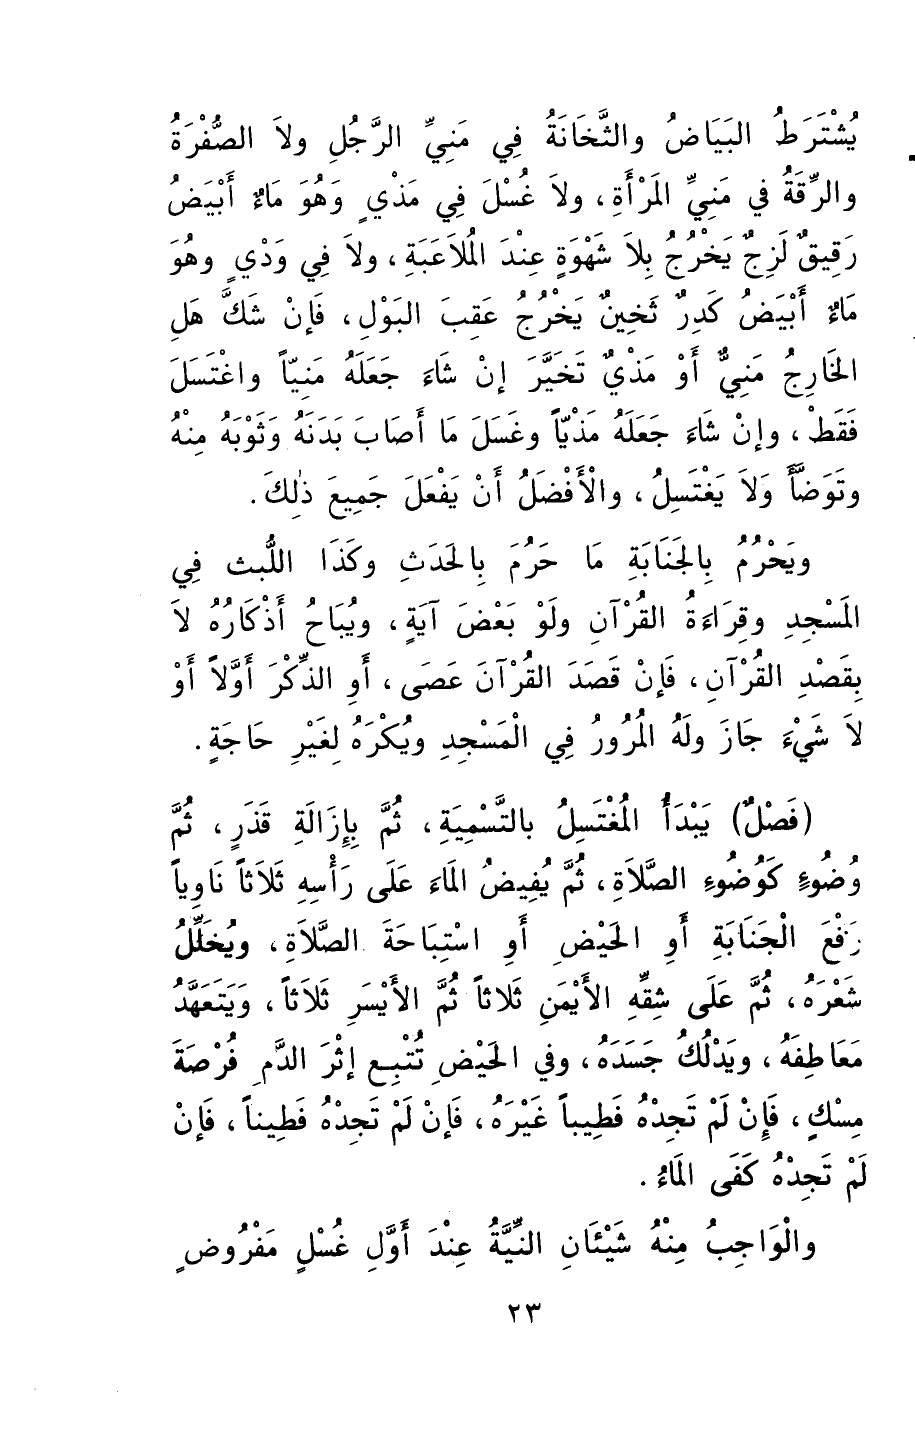 يُشْتَرَطُ البَيَاضُ والثَّخَانَةُ فِي مَنِيِّ الرَّجُلِ ولاَ الصُّفْرَةُ
والرِّقَةُ في مَنِيِّ المَرْأَةِ، ولاَ غُسْلَ فِي مَذْيٍ وَهُوَ مَاءٌ أَبْيَضُ
رَقِيقٌ لَزِجٌ يَخْرُجُ بِلاَ شَهْوَةٍ عِنْدَ المُلاَعَبَةِ، ولاَ فِي وَدْيٍ وهُوَ
مَاءٌ أَبْيَضُ كَدِرٌ ثَخِينٌ يَخْرُجُ عَقِبَ البَوْلِ، فَإنْ شَكَّ هَلِ
الخَارِجُ مَنِيٌّ أَوْ مَذْيٌ تَخَيَّرَ إنْ شَاءَ جَعَلَهُ مَنِيّاً واغْتَسَلَ
فَقَطْ، وإنْ شَاءَ جَعَلَهُ مَذْيّاً وغَسَلَ مَا أَصَابَ بَدَنَهُ وَثَوْبَهُ مِنْهُ
وتَوَضَّأَ وَلاَ يَغْتَسِلُ، والْأَفْضَلُ أَنْ يَفْعَلَ جَمِيعَ ذٰلِكَ.
ويَحْرُمُ بِالجَنَابَةِ مَا حَرُمَ بِالحَدَثِ وكَذَا اللُّبث فِي
المَسْجِدِ وقِرَاءَةُ القُرْآنِ ولَوْ بَعْضَ آيَةٍ، ويُبَاحُ أَذْكَارُهُ لاَ
بِقَصْدِ القُرْآنِ، فَإنْ قَصَدَ القُرْآنَ عَصَى، أَوِ الذِّكْرَ أَوَّلاً أَوْ
لاَ شَيْءَ جَازَ ولَهُ المُرُورُ فِي الْمَسْجِدِ ويُكْرَهُ لِغَيْرِ حَاجَةٍ.
(فَصْلٌ) يَبْدَأُ المُغْتَسِلُ بالتَّسْمِيَةِ، ثُمَّ بِإِزَالَةِ قَذَرٍ، ثُمَّ
وُضُوءٍ كَوُضُوءِ الصَّلاَةِ، ثُمَّ يُفِيضُ المَاءَ عَلَى رَأْسِهِ ثَلاَثاً نَاوِياً
رَفْعَ الْجَنَابَةِ أَوِ الحَيْضِ أَوِ اسْتِبَاحَةَ الصَّلاَةِ، ويُخَلِّلُ
شَعْرَهُ، ثُمَّ عَلَى شِقِّهِ الأَيْمَنِ ثَلاَثاً ثُمَّ الأَيْسَرِ ثَلاَثاً، وَيَتَعَهَّدُ
مَعَاطِفَهُ، ويَدْلُكُ جَسَدَهُ، وفي الحَيْضِ تُتْبِع إثْرَ الدَّمِ فُرْصَةَ
مِسْكٍ، فَإِنْ لَمْ تَجِدْهُ فَطِيباً غَيْرَهُ، فَإنْ لَمْ تَجِدْهُ فَطِيناً، فَإنْ
لَمْ تَجِدْهُ كَفَى المَاءُ.
والْوَاجِبُ مِنْهُ شَيْئَانِ النِّيَّةُ عِنْدَ أَوَّلِ غُسْلٍ مَفْرُوضٍ
٢٣